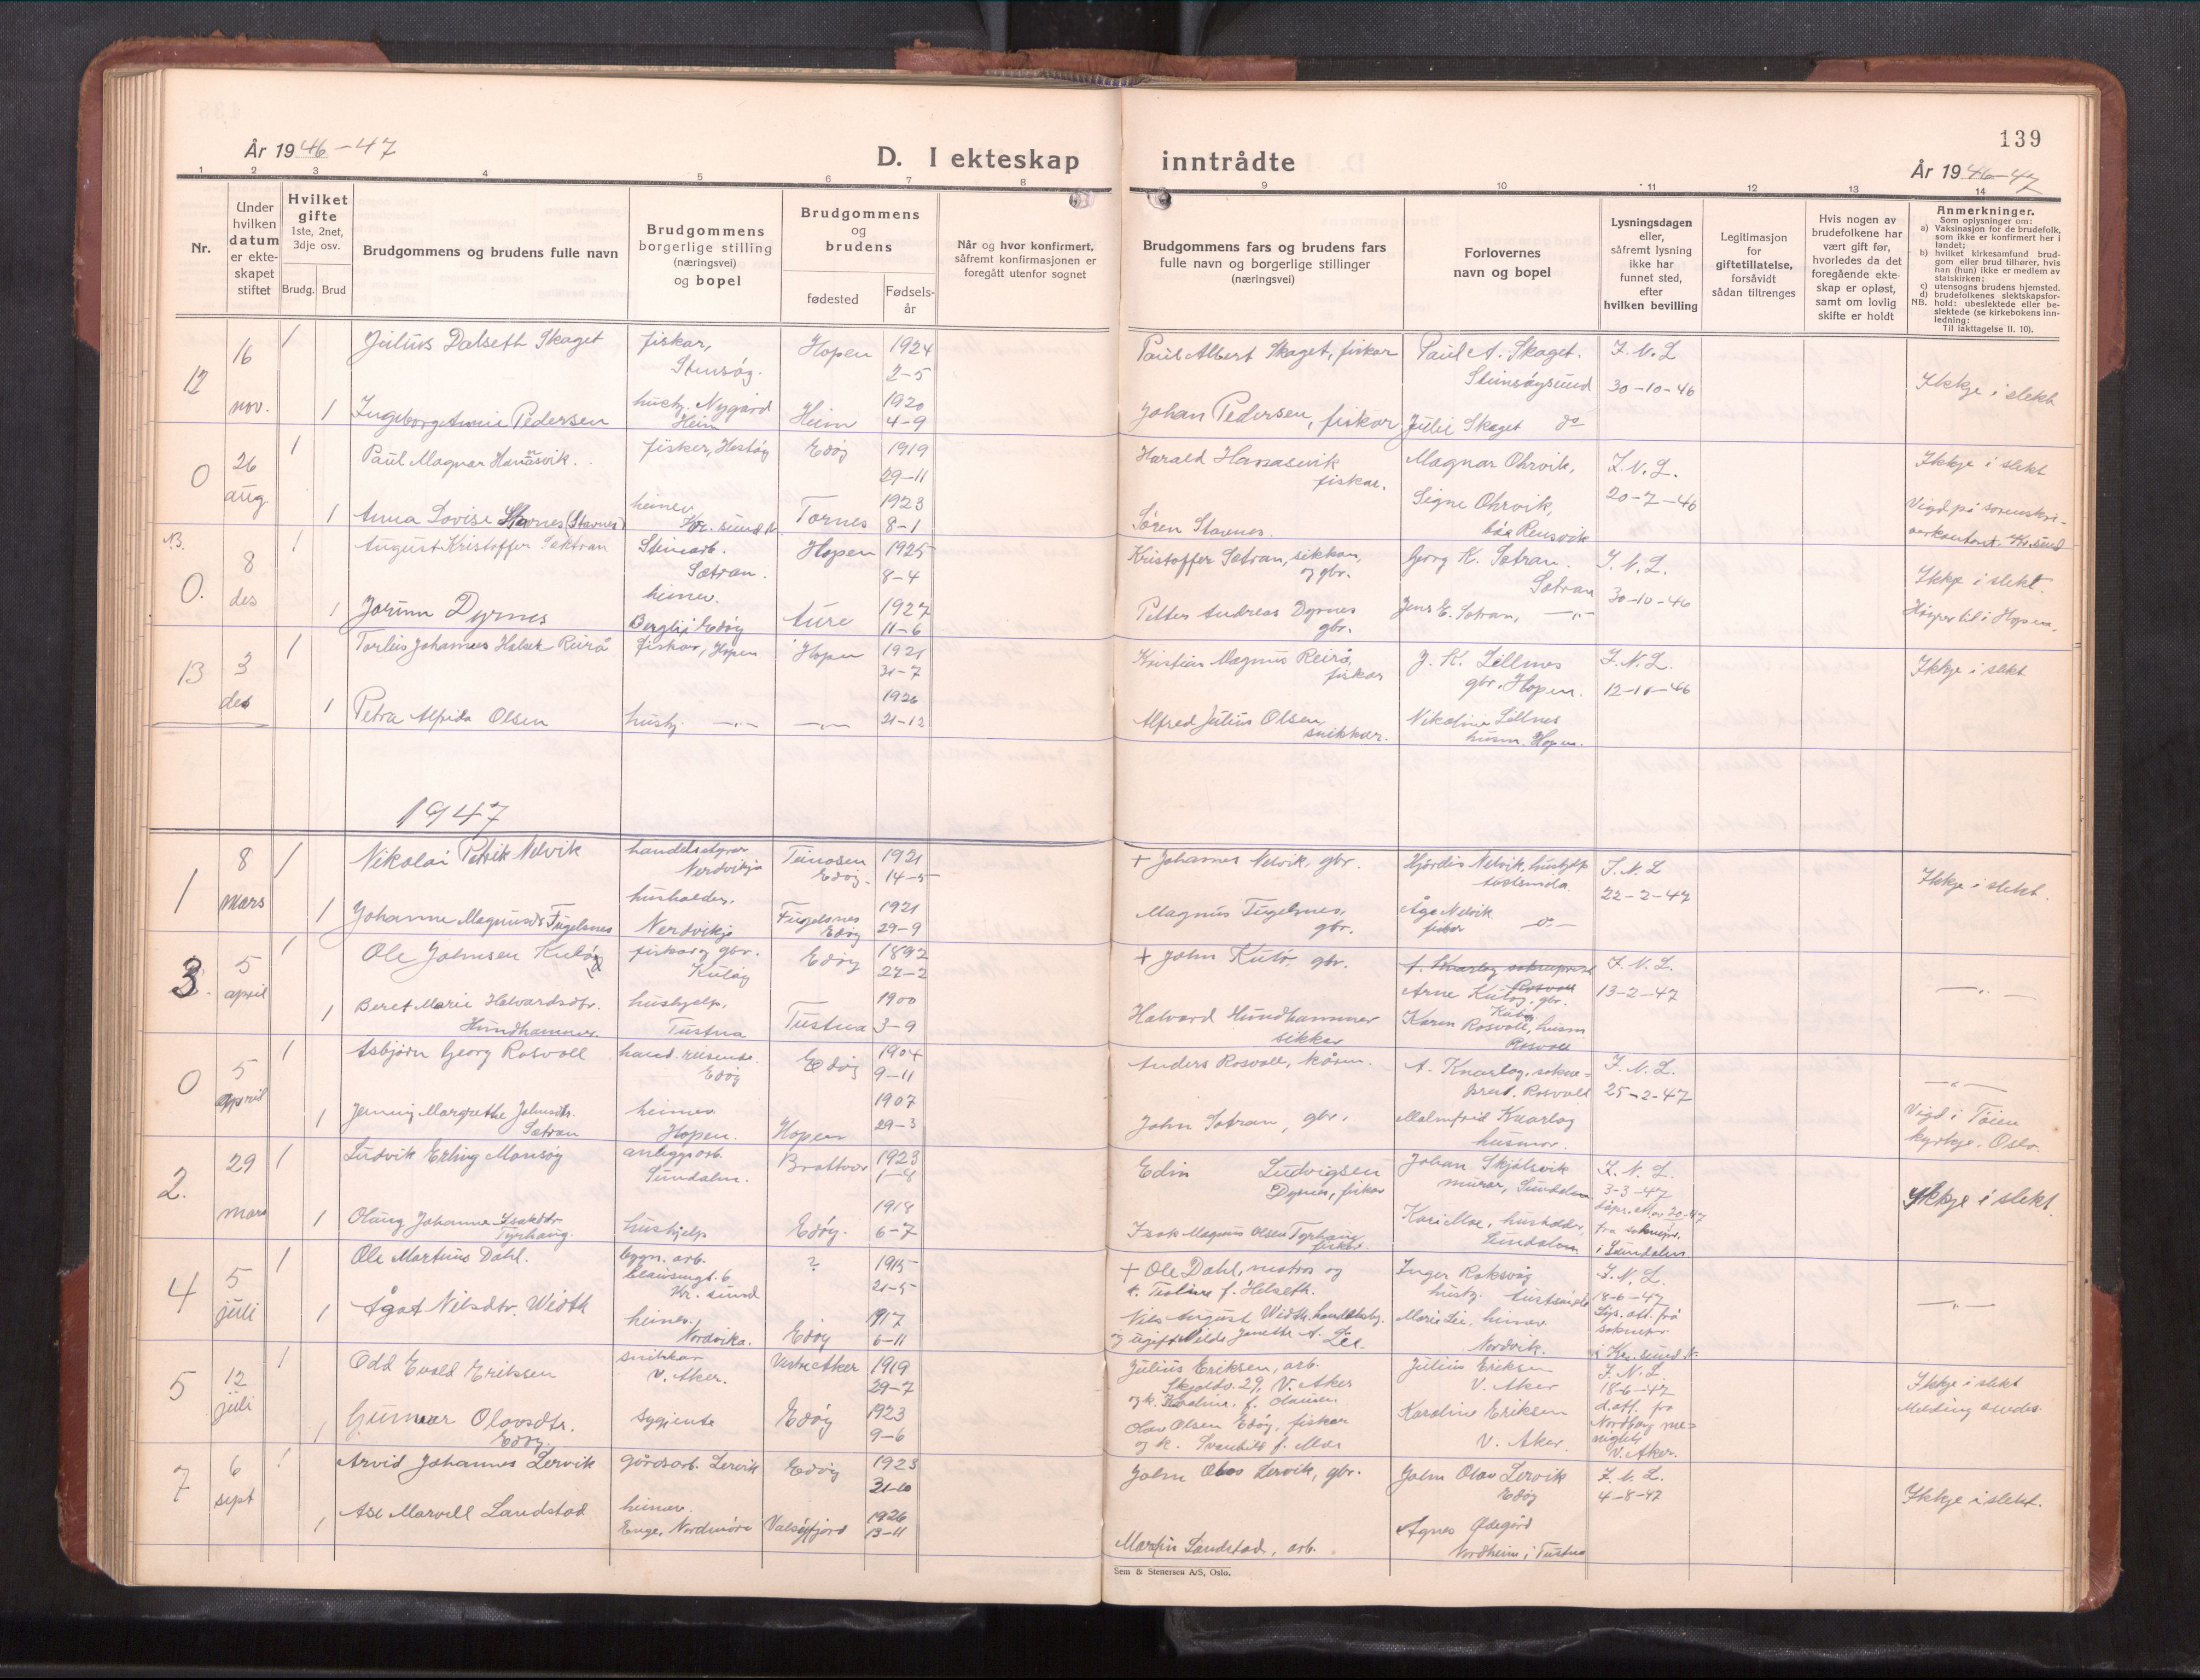 139
År 1946-47
D. I ekteskap inntrådte
År 1946-47
1 2 3 4 5 6 7 8 9 10 11 12 13 14
Nr.
Under
hvilken
datum
er ekte-
skapet
stiftet
Hvilket
gifte
1ste, 2net,
3dje osv.
Brudg. Brud
Brudgommens og brudens fulle navn
Brudgommens
borgerlige stilling
(næringsvei)
og bopel
Brudgommens
og
brudens
fødested
Fødsels-
år
Når og hvor konfirmert,
såfremt konfirmasjonen er
foregått utenfor sognet
Brudgommens fars og brudens fars
fulle navn og borgerlige stillinger
(næringsvei)
Forlovernes
navn og bopel
Lysningsdagen
eller,
såfremt lysning
ikke har
funnet sted,
efter
hvilken bevilling
Legitimasjon
for
giftetillatelse,
forsåvidt
sådan tiltrenges
Hvis nogen av
brudefolkene har
vært gift før,
hvorledes da det
foregående ekte-
skap er opløst,
samt om lovlig
skifte er holdt
Anmerkninger.
Som oplysninger om:
a) Vaksinasjon for de brudefolk,
som ikke er konfirmert her i
landet;
b) hvilket kirkesamfund brud-
gom eller brud tilhører, hvis
han (hun) ikke er medlem av
statskirken;
c) utensogns brudens hjemsted.
d) brudefolkenes slektskapsfor-
NB. hold: ubeslektede eller be-
slektede (se kirkebokens inn-
ledning:
Til iakttagelse II. 10).
12 16 nov. 1 Julius Dalseth Skaget fiskar, Hopen 1924 2-5
Paul Albert Skaget, fiskar Paul A. Skaget. F.N.L 30-10-46 Ikkje i slekt
1 Ingeborg Annie Pedersen hush. Nygård Heim Heim 1920 4-9
Johan Pedersen, fiskar Julie Skaget do
0 26 aug 1 Paul Magnar Hanasvik. fisker, Hestøy Edøy 1919 29-11
Harald Hanasvik fiskar. Magnar Ohrvik, F.N.L. 20-7-46 Ikkje i slekt
1 Anna Lovise Stavnes (Stavnes) heimev. Kr. sund N Tornes 1923 8-1
Søren Stavnes. Signe Ohrvik, Rensvik
Vigd på sorenskri-
verkontoret. Kr.sund
13.
0. 8 des 1 August Kristoffer Sætran Sætran. Hopen 1925 8-4
Kristoffer Sætran, og gbr. Georg K. Sætran. Sætran F.N.L. 30-10-46 Ikkje i slekt.
1 Jorunn Dyrnes heimev. Edøy Aure 1927 11-6
Petter Andreas Dyrnes gbr. Jens E. Sætran, -"-
Høyrer til i Hopen.
13 3 des 1 Torleis Johannes Reirå fiskar, Hopen Hopen 1921 31-7
Kristian Magnus Reirå, fiskar J. K. Lillnes gbr. Hopen. F.N.L. 12-11-46 Ikkje i slekt
1 Petra Alfrida Olsen hushj. -"- -"- 1926 21-12
Alfred Julius Olsen snikkar. Nikoline Lillnes husm. Hopen.
1947
1 8 mars 1 Nikolai Petrik Nelvik handelsstyrar Nordvikja Edøy. 1921 14-5
+ Johannes Nelvik, gbr. Hjørdis Nelvik, hushjelp F.N.L 22-2-47 Ikkje i slekt.
1 Johanne Magnusdr Fugelsnes husholder, Nerdvikja Fugelsnes Edøy 1921 29-9
Magnus Fugelsnes, gbr. Åge Nelvik fiskar -"-
3. 5 april 1 Ole Johnsen Kuløy fiskar og gbr. Kuløy Edøy 1892 27-2
+ John Kulø. gbr. Arne Kuløy, gbr. Kuløy F.N.L. 13-2-47 -"-
1 Beret Marie Halvardsdtr. Hundhammer hushjelp, Tustna Tustna 1900 3-9
Halvard Hundhammer Karen Rosvoll, husm Rosvoll
0 5 april 1 Asbjørn Georg Rosvoll hand. reisende. Edøy Edøy 1904 9-11
Anders Rosvoll, A. Knarlag, sokne- prest. Rosvoll F.N.L. 25-2-47 -"-
1 Jenny Margrethe Johnsdtr. Sætran heimev. Hopen. Hopen 1907 29-3
John Sætran, gbr. Malmfrid Knarlag husmor.
Vigd i Tøien
kyrkje, Oslo.
2. 29 mars 1 Ludvik Erling Monsøy anleggsarb. Sundalen. Brattvær 1923 1-8
Edin Ludvigsen Dyrnes, fiskar Johan Skjølsvik murar, Sundalen F.N.L. 3-3-47 Ikkje i slekt.
1 Olaug Johanne Isakdtr. Tyrhaug. hushjelp Edøy. 1918 6-7
Isak Magnus Olsen Tyrhaug fiskar. Kari Moe, husholder, Sundalen fra sokneprs. i Sundalen
4 5 juli 1 Ole Martinus Dahl. bygn. arb. Clausengt. 6 Kr. sund ? 1915 21-5
+ Ole Dahl, matros og k. f. Helseth. Inger Roksvåg hushj. F.N.L. 18-6-47 -"-
1 Ågot Nilsdtr. Width heimev. Nordvika. Edøy 1917 6-11
Nils August Width, og ugift Janette A. Lee. Marie Lie, heimev. Nordvik. Lys. att. frå soknepr. i Kr. sund N.
5 12 juli 1 Odd Evald Eriksen snikkar V. Aker. Vestre Aker 1919 29-7
Julius Eriksen, arb. Skjoldv. 29, V. Aker og k. Karoline, f. Clausen. Julius Eriksen V. Aker F.N.L. 18-6-47 Ikkje i slekt
Melding sendes.
1 Gunvor Olavsdtr. Edøy. sygjente Edøy 1923 9-6
Olav Olsen Edøy, fiskar og k. Svanhild f. Moe Karoline Eriksen V. Aker. Nordberg me- nighet, V. Aker.
7 6 sept 1 Arvid Johannes Lervik gårdsarb. Lervik Edøy 1923 31-10
John Olas Lervik, gbr. John Olav Lervik Edøy F.N.L. 4-8-47 Ikkje i slekt.
1 Åse Marvell Landstad heimev. Enge, Nordmøre Valsøyfjord 1926 13-11
Martin Landstad, arb. Agnes Ødegård Nordheim i Tustna
Sem & Stenersen A/S, Oslo.